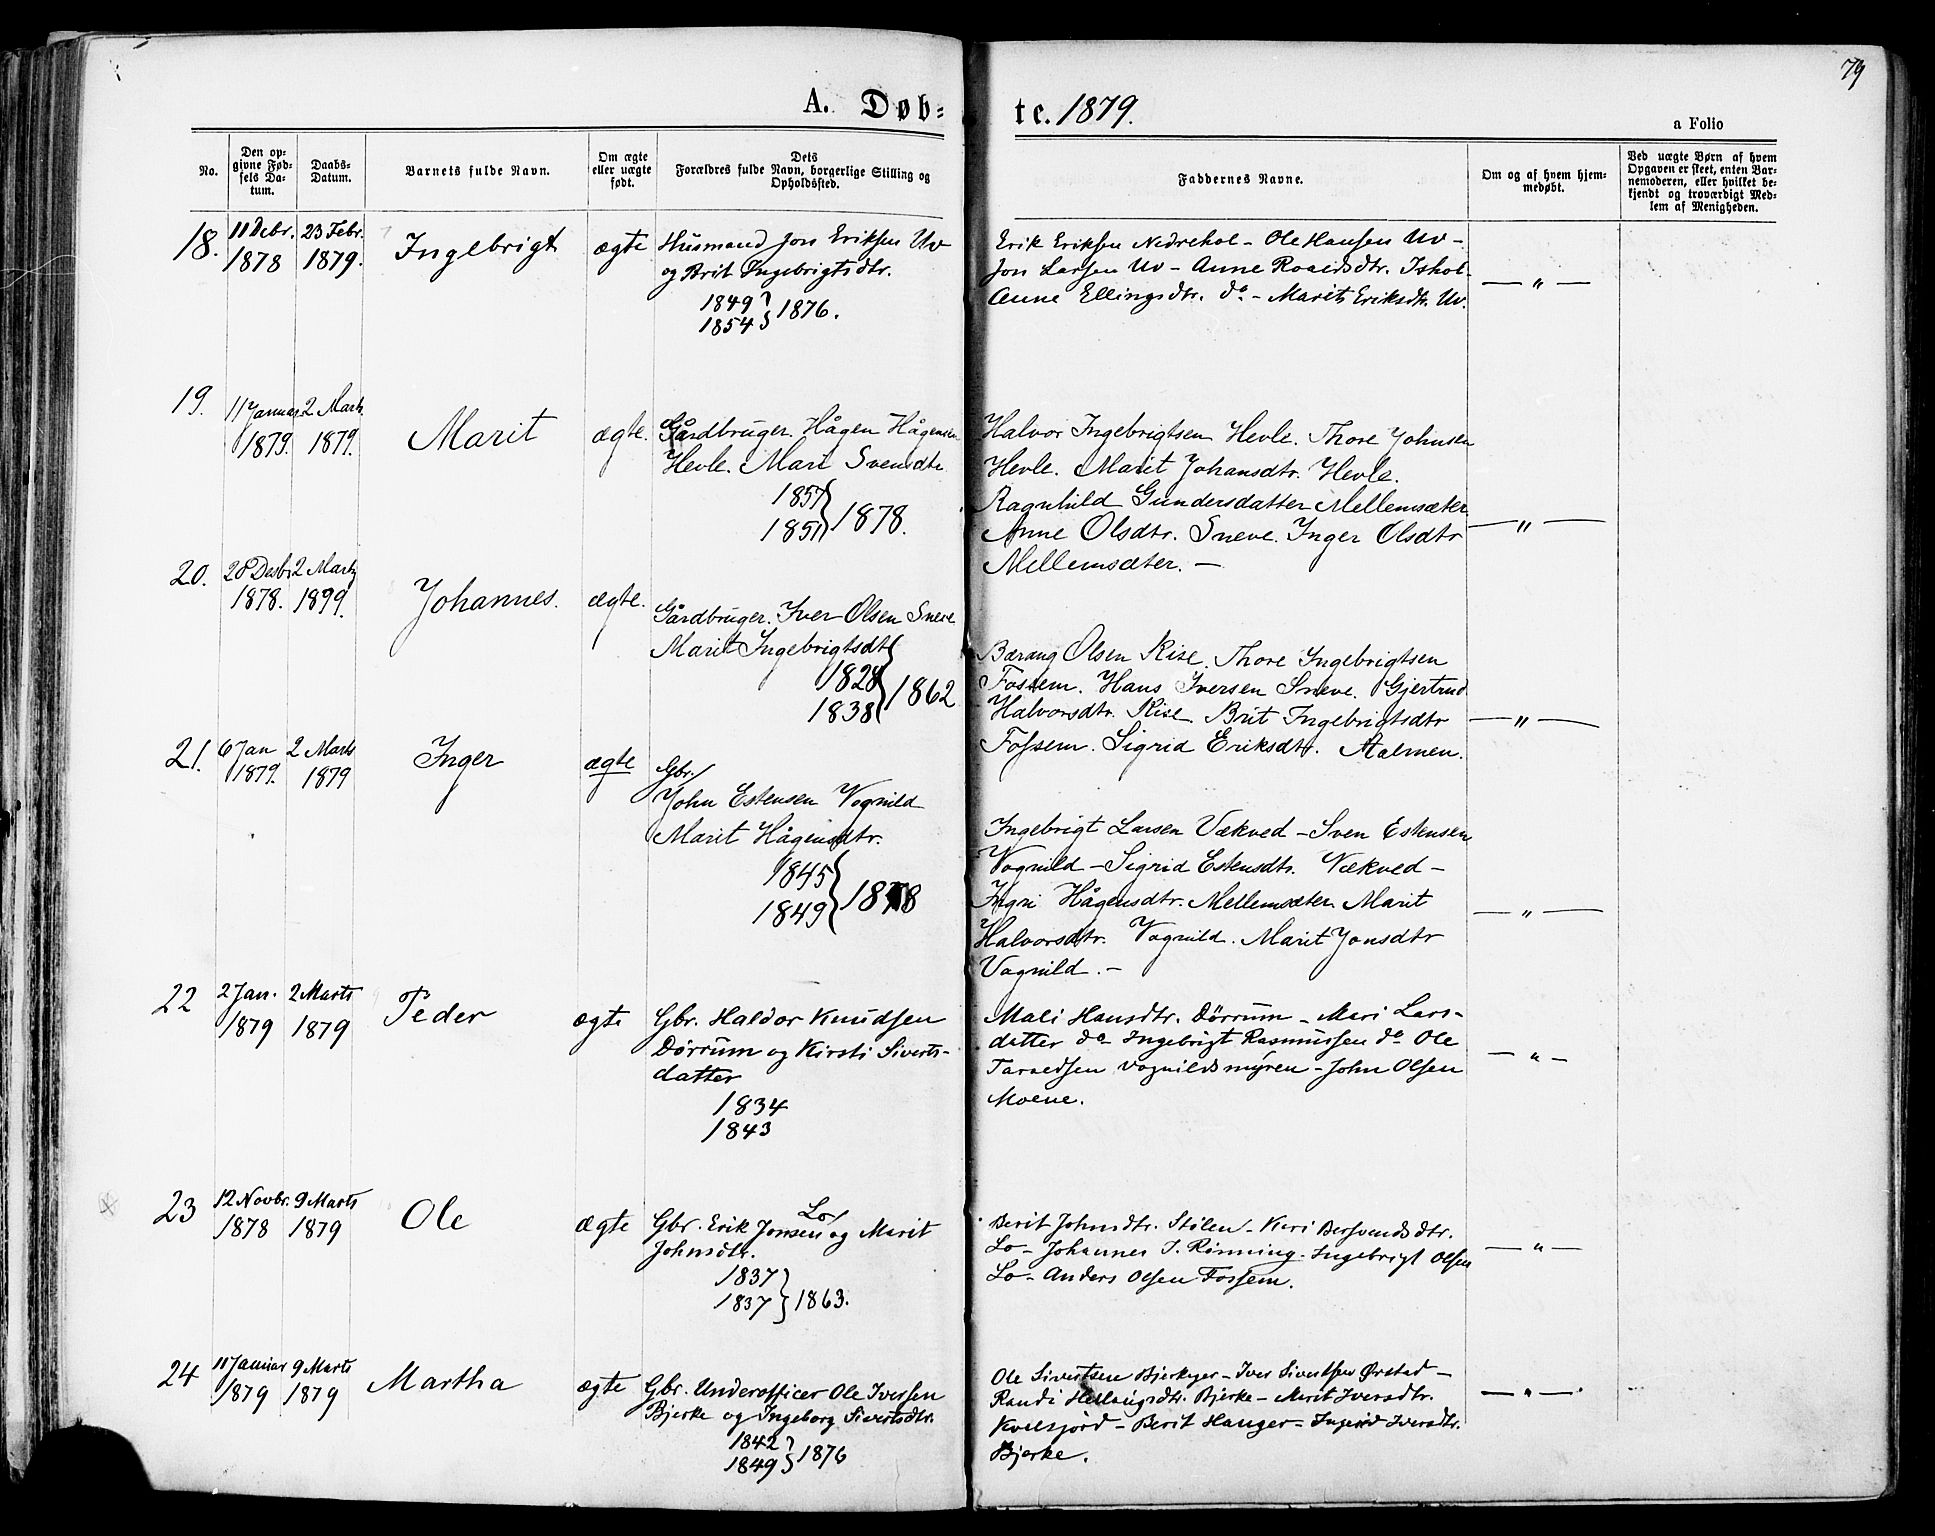 79
A. Døb=
te. 1879.
a Folio
No.
Den op-
givne Fød-
sels Da-
tum.
Daabs-
Datum.
Barnets fulde Navn.
Om ægte
eller uægte
født.
Dets
Forældres fulde Navn, borgerlige Stilling og
Opholdssted.
Faddernes Navne.
Om og af hvem hjem-
medøbt.
Ved uægte Børn af hvem
Opgaven er skeet, enten Bar-
nemoderen, eller hvilket be-
kjendt og troværdigt Med-
lem af Menigheden.
18.
11 Debr.
1878
23 Febr.
1879.
Ingebrigt
ægte
Husmand Jon Eriksen Uv
og Brit Ingebrigtsdtr.
1849
1854 } 1876.
Erik Eriksen Nedrehol - Ole Hansen Uv -
Jon Larsen Uv - Anne Roaldsdtr. Ishol-
Anne Ellingsdtr. do - Marit Eriksdtr. Uv.
— " —
19.
11 Januar
1879.
2 Marts
1879.
Marit
ægte.
Gårdbruger. Hågen Hågensen
Hevle. Mari Svensdtr
1857
1851 } 1878.
Halvor Ingebrigtsen Hevle. Thore Johnsen
Hevle. Marit Johansdtr. Hevle.
Ragnhild Gundersdatter Mellemsæter
Anne Olsdtr. Sneve. Inger Olsdtr
Mellemsæter. —
— " —
20.
28 Desbr
1878.
2 Marts
1899.
Johannes.
ægte.
Gårdbruger. Iver Olsen Sneve
Marit Ingebrigtsdtr
1828
1838 } 1862
Bærang Olsen Rise. Thore Ingebrigtsen
Fossem. Hans Iversen Sneve. Gjertrud
Halvorsdtr. Rise. Brit Ingebrigtsdtr
Fossem. Sigrid Eriksdtr. Malmen.
— " —
21.
6 Jan
1879.
2 Marts
1879
Inger
ægte
Gbr.
John Estensen Vognild
Marit Hågensdtr.
1845
1849 } 1878
Ingebrigt Larsen Vækved - Sven Estensen
Vognild - Sigrid Estensdtr. Vækved -
Ingri Hågensdtr. Mellemsæter Marit
Halvorsdtr. Vognild. Marit Jonsdtr
Vognild. -
— " —
22
2 Jan.
1879
2 Marts
1879
Peder
ægte
Gbr. Haldor Knudsen
Dørrum og Kirsti Siverts-
datter
1834
1843
Mali Hansdtr. Dørrum - Mari Lars-
datter do - Ingebrigt Rasmussen do Ole
Taraldsen Vognildsmyren - John Olsen
Moene.
— " —
23
12 Novbr.
1878
9 Marts
1879
Ole
ægte
Lo/
Gbr. Erik Jonsen og Marit
Johnsdtr.
1837
1837 } 1863.
Berit Johnsdtr. Stølen - Kari Bersvendsdtr.
Lo - Johannes J. Rønning - Ingebrigt Olsen
Lo - Anders Olsen Fossem.
— " —
24
11 Januar
1879
9 Marts
1879
Martha
ægte
Gbr. Underofficer Ole Iversen
Bjerke og Ingeborg Sivertsdtr.
1842
1849 } 1876
Ole Sivertsen Bjerkager - Iver Sivertsen Ørstad -
Randi Hellangsdtr. Bjerke - Marit Iversdtr.
Kvelsjord - Berit Hanger - Ingerid Iversdtr.
Bjerke.
— " —